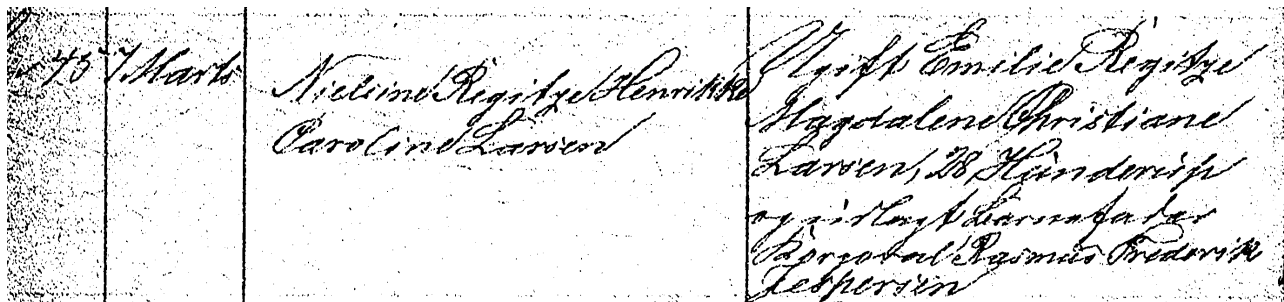 45 7 Marts
Nielsine Regitze Henrikke
Caroline Larsen
Ugift Emilie Regitze
Magdalene Christiane
Larsen, 28, Hunderup
og udlagt Barnefader
Korporal Rasmus Frederik
Jespersen